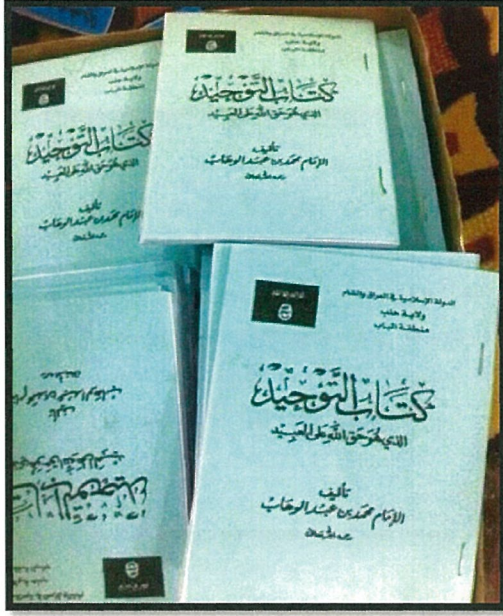 الدولة الإسلامية في العراق والشام
ولاية حلب
منطقة الباب
كتاب التوحيد
الذي هو حق الله على العبيد
تأليف
الإمام محمد بن عبد الوهاب
رحمه الله تعالى
الدولة الإسلامية في العراق والشام
ولاية حلب
منطقة الباب
كتاب التَّوْحِيد
الذي هو حق الله على العبيد
تأليف
الإمام محمد بن عبد الوهاب
رحمه الله تعالى
كتاب التوحيد
الذي هو حق الله على العبيد
تأليف
الإمام محمد بن